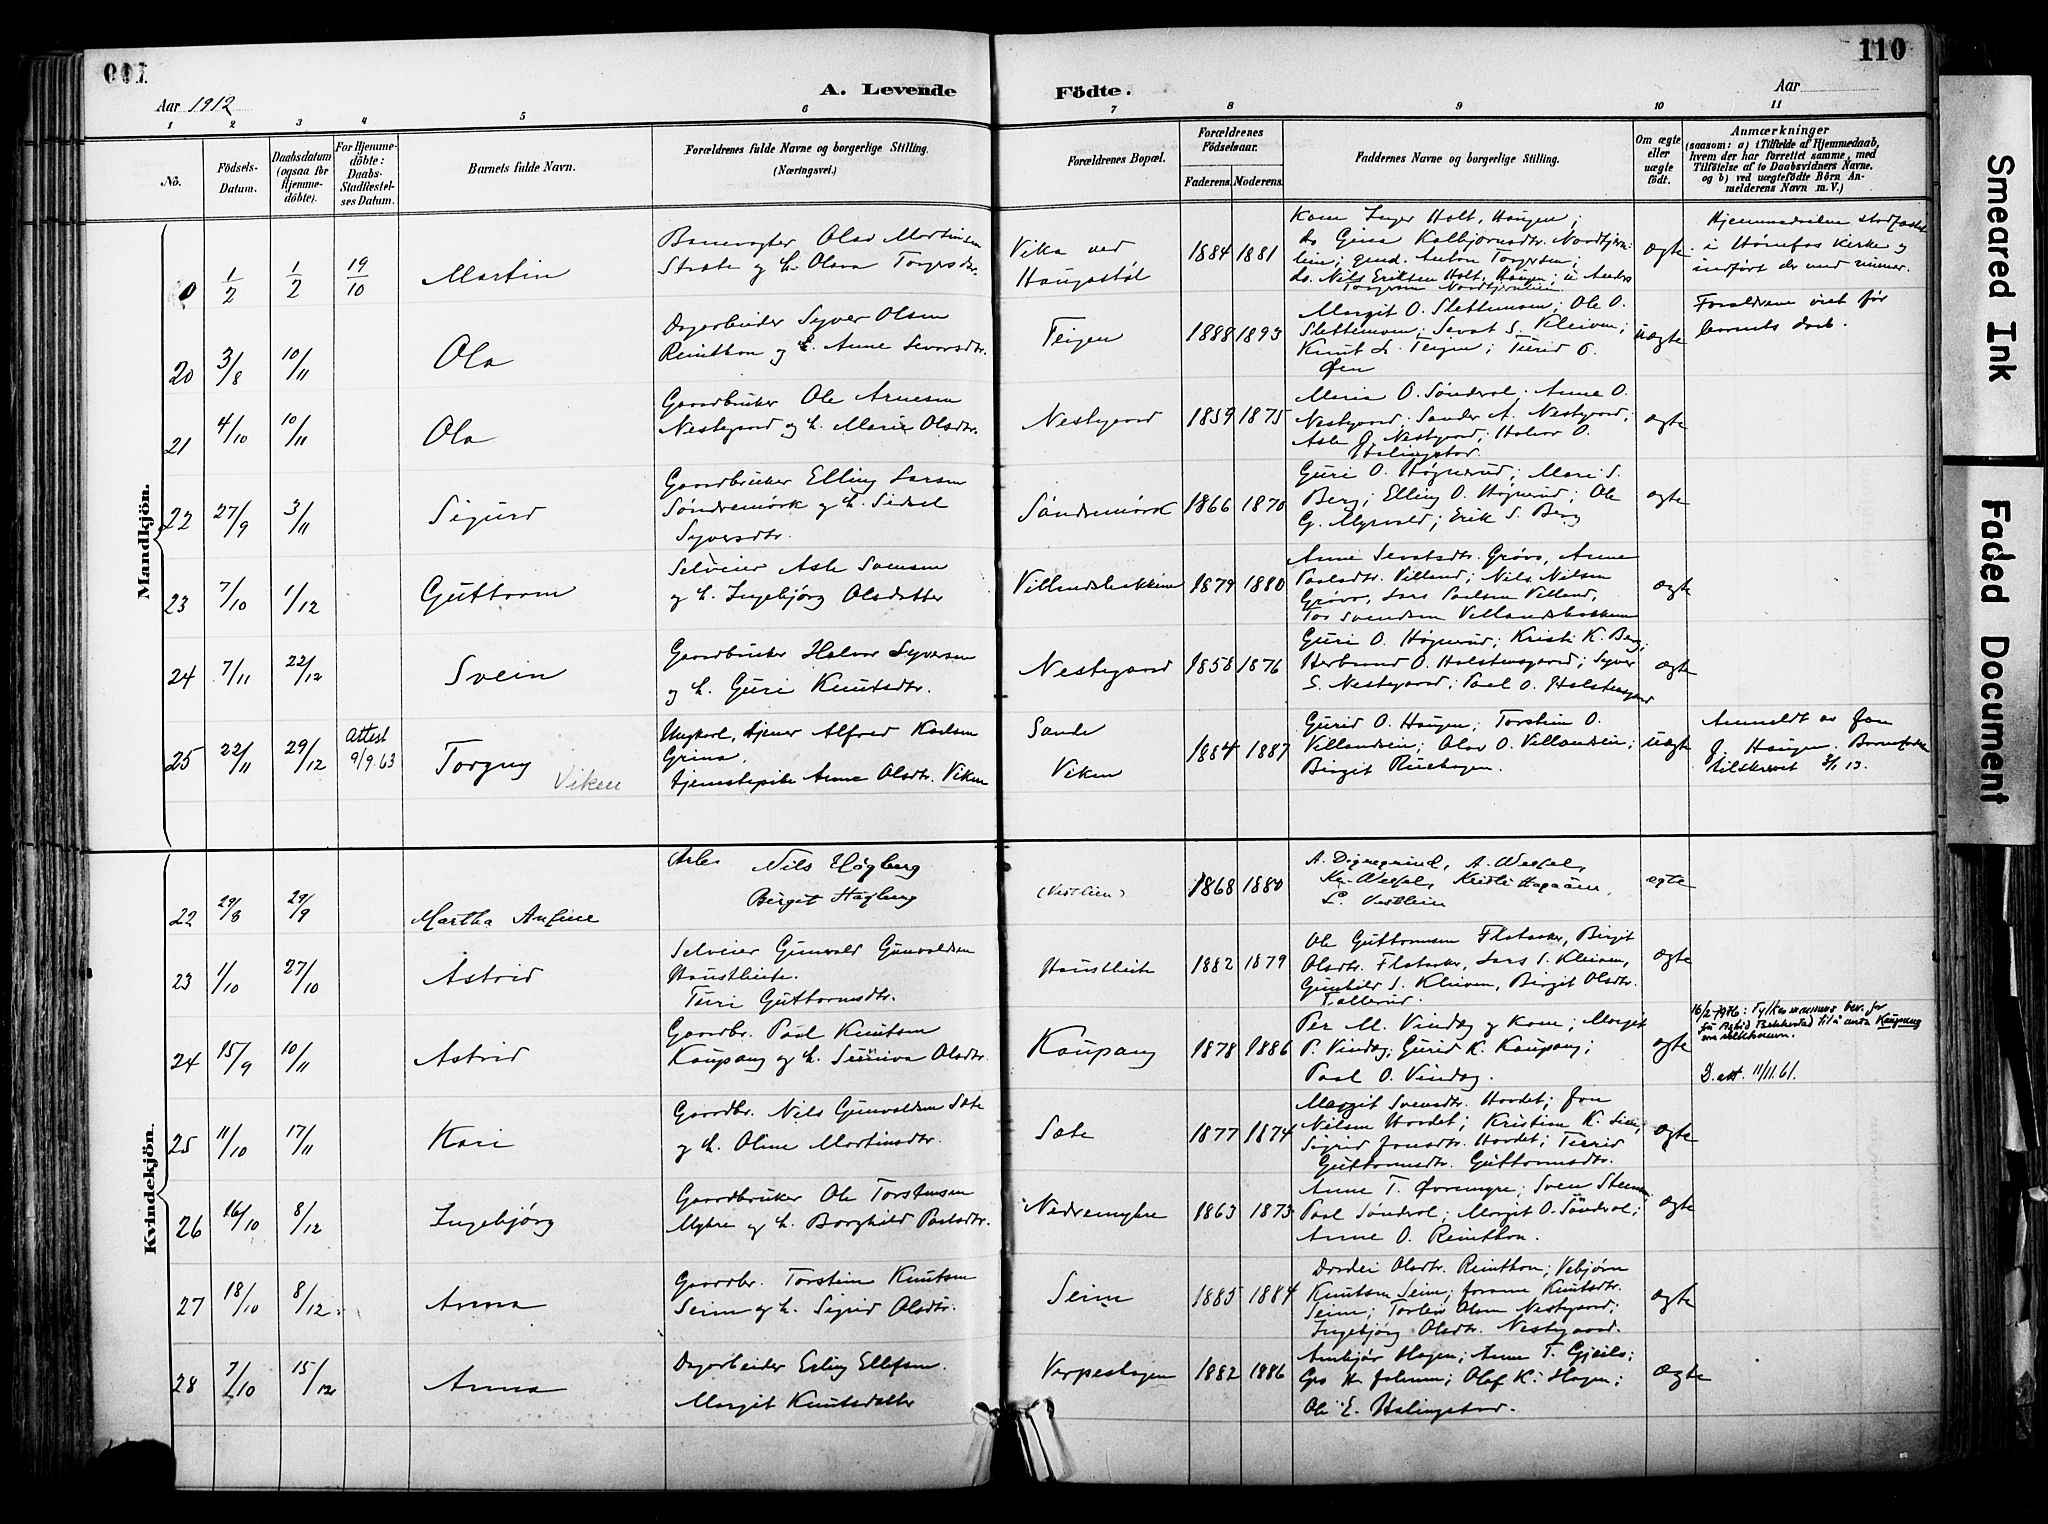 110
A. Levende Födte.
Aar 1912
Aar
1 2 3 4 5 6 7 8 9 10 11
No.
Födsels-Datum.
Daabsdatum (ogsaa for Hjemmedöbte).
For Hjemmedöbte: Daabs-Stadfæstelses Datum.
Barnets fulde Navn.
Forældrenes fulde Navne og borgerlige Stilling. (Næringsvei.)
Forældrenes Bopæl.
Forældrenes Födselsaar.
Faderens. Moderens.
Faddernes Navne og borgerlige Stilling.
Om ægte eller uægte födt.
Anmærkninger
(saasom: a) i Tilfælde af Hjemmedaab,
hvem der har forrettet samme, med
Tilföielse af to Daabsvidners Navne,
og b) ved uægtefödte Börn An-
melderens Navn m. V.)
Mandkjön.
0 1/2 1/2 19/10 Martin
Banevogter Olav Martinsen
Strate og h. Olava Torgersdtr.
Vika ved
Haugastøl
1884 1881
Kone Inger Holt, Haugen;
ægte
i Hønefos Kirke og
20 3/8 10/11 Ola
Dagarbeider Syver Olsen
Reinthon og h. Anne Sevatsdtr.
Teigen
1888 1893
Margit O. Slettemoen; Ole O.
Slettemoen; Sevat S. Kleiven;
Knut L. Teigen; Turid O.
Øen
uægte
Forældrene viet før
barnets daab.
21 4/10 10/11 Ola
Gaardbruker Ole Arnesen
Nestegaard og h. Marie Olsdtr.
Nestegaard
1859 1875
Maria O. Sønderol; Anne O.
Nestegaard; Sander A. Nestegaard;
Asle J. Nestegaard; Halvor O.
Halingstad.
ægte
22 27/9 3/11 Sigurd
Gaardbruker Elling Larsen
Søndremørk og h. Sidsel
Syversdtr.
Søndremørk
1866 1870
Guri O. Høgnerud; Mari S.
Berg; Elling O. Høgnerud; Ole
G. Myrvold; Erik S. Berg
ægte
23 7/10 1/12 Guttorm
Selveier Asle Svensen
og h. Ingebjørg Olsdatter
Villandsbakken
1879 1880
Anne Sevatsdtr. Grøvo, Anne
Paalsdtr. Villand; Nils Nilsen
Grøvo, Lars Paalsen Villand,
Tor Svendsen Villandsbakken
ægte
24 7/11 22/12 Svein
Gaardbruker Halvor Syversen
og h. Guri Knutsdtr.
Nestegaard
1858 1876
Guri O. Høgnerud; Kristi K. Berg;
Herbrand O. Holstensgaard; Syver
S. Nestegaard; Paal O. Holstensgaard
ægte
25 22/11 29/12 Attest 9/9.63 Torgny Viken
Ungkarl, tjener Alfred Karlsen
Grina,
tjenestepike Anne Olsdtr. Viken
Sande
Viken
1884 1887
Gurid O. Haugen; Torstein O.
Villandseie; Olav O. Villandseie;
Birgit Ruehagen.
uægte
Anmeldt av Jon
J. Haugen. Barnefader
tilskrevet 2/1 13.
Kvindekjön.
22 29/8 29/9 Martha Anfine
Arb. Nils Høgberg
Birgit Høgberg
(Vestlien)
1868 1880
L. Vestlein
ægte
23 1/10 27/10 Astrid
Selveier Gunvald Gunvaldsen
Haustleite.
Turi Guttormsdtr.
Haustleite
1882 1879
Ole Guttormsen Flataaker, Birgit
Olsdtr. Flataaker, Lars S. Kleiven,
Gunhild S. Kleiven, Birgit Olsdtr.
Tallerud.
ægte
24 15/9 10/11 Astrid
Gaardbr. Paal Knutsen
Kaupang og h. Sunniva Olsdtr.
Kaupang
1878 1886
Per M. Vindøg og Kone; Margit
P. Vindøg; Gurid K. Kaupang;
Paal O. Vindøg.
ægte
16/2-1976: Fylkesmannens bev. for
til å anta Kaupang
D. att. 11/11.61.
25 11/10 17/11 Kari
Gaardbr. Nils Gunvaldsen Sæte
og h. Oline Martinsdtr.
Sæte
1877 1874
Margit Svensdtr. Hovdet; Jon
Nilsen Hovdet; Kristian K. Lien;
Sigrid Jonsdtr. Hovdet; Turid
Guttormsdtr. Guttormsdtr.
ægte
26 16/10 8/12 Ingebjørg
Gaardbruker Ole Torstensen
Myhre og h. Borghild Paalsdtr.
Nedremyhre
1863 1873
Anne T. Øvremyre; Sven
Paal Sønderol; Margit O. Sønderol;
Anne O. Reinthon.
ægte
27 18/10 8/12 Anna
Gaardbr. Torstein Knutsen
Seim og h. Sigrid Olsdtr.
Seim
1885 1884
Dordei Olsdtr. Reinthon; Vebjørn
Knutsen Seim; Jorann Knutsdtr.
Seim; Torleiv Olsen Nestegaard;
Ingebjørg Olsdtr. Nestegaard.
ægte
28 7/10 15/12 Anna
Dagarbeider Erling Ellefsen.
Margit Knutsdatter
Verpeshagen
1882 1886
Ambjør Hagen; Anne T. Gjeilo;
Olaf K. Hagen;
Ole E. Halingstad.
ægte
Smeared Ink
Faded Document